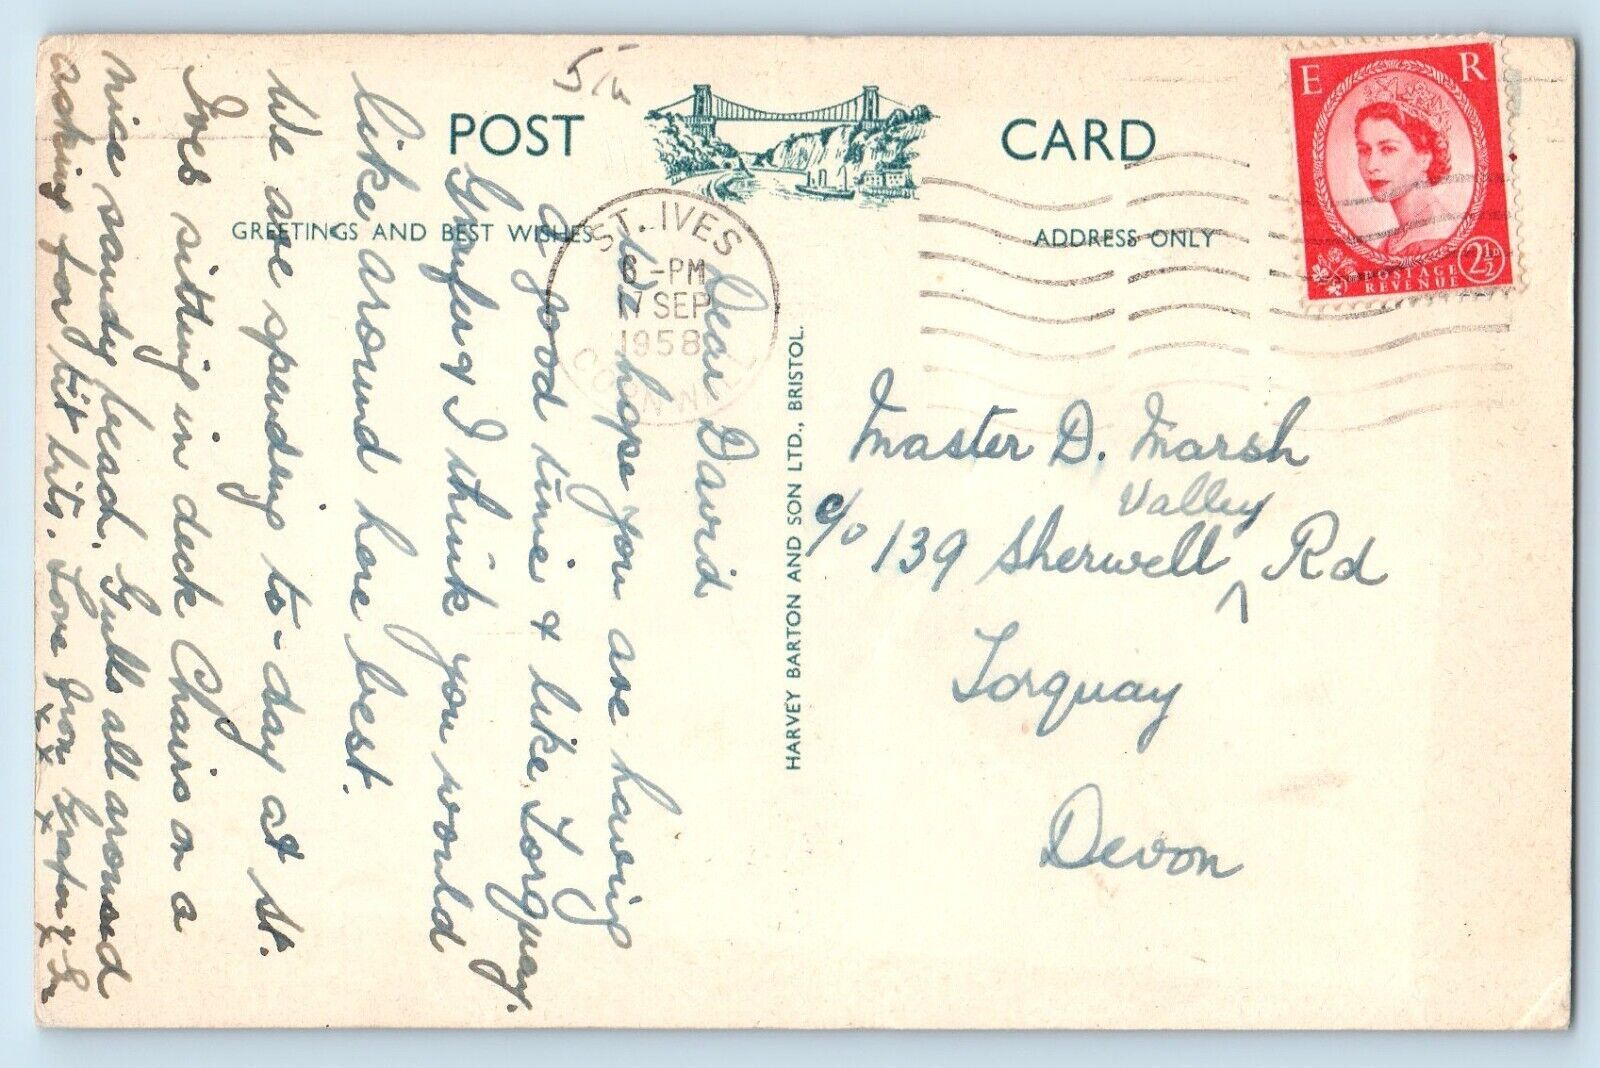 5/6
POST CARD
GREETINGS AND BEST WISHES
ADDRESS ONLY
ST. IVES
6 - PM
17 SEP
1958
CORNWALL
E R
POSTAGE
REVENUE
2½D
HARVEY BARTON AND SON LTD., BRISTOL.
Dear David
We hope you are having
a good time & like Torquay.
Granfer & I think you would
like around here best.
We are spending to-day at St.
Ives sitting in deck chairs on a
nice sandy beach. Gulls all around
asking for tit bits. Love from Granfer & Gr
x x x x
Master D. Marsh
c/o 139 Sherwell Valley Rd
Torquay
Devon